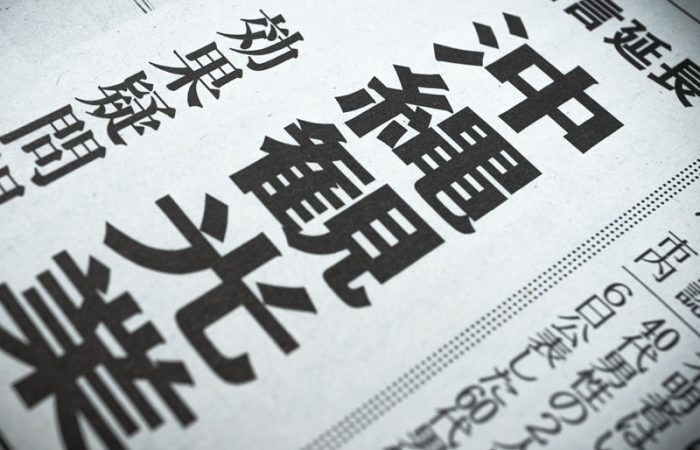 言延長
沖縄観光業
効果疑問
市内
40代男性の2人
6日公表した60代男